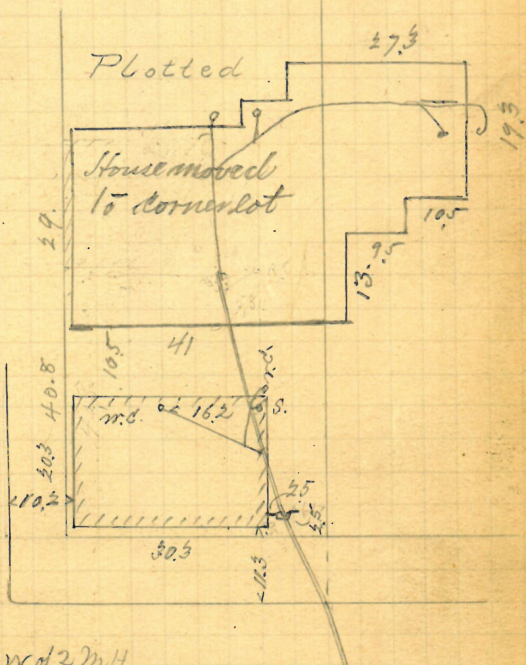 Plotted
27.3
19.3
House moved
to corner lot
29.
10.5
9.5
13.
41
10.5
40.8
w.c.
16.2
S.
20.3
10.2
25
30.3
11.3
W of 2 MH